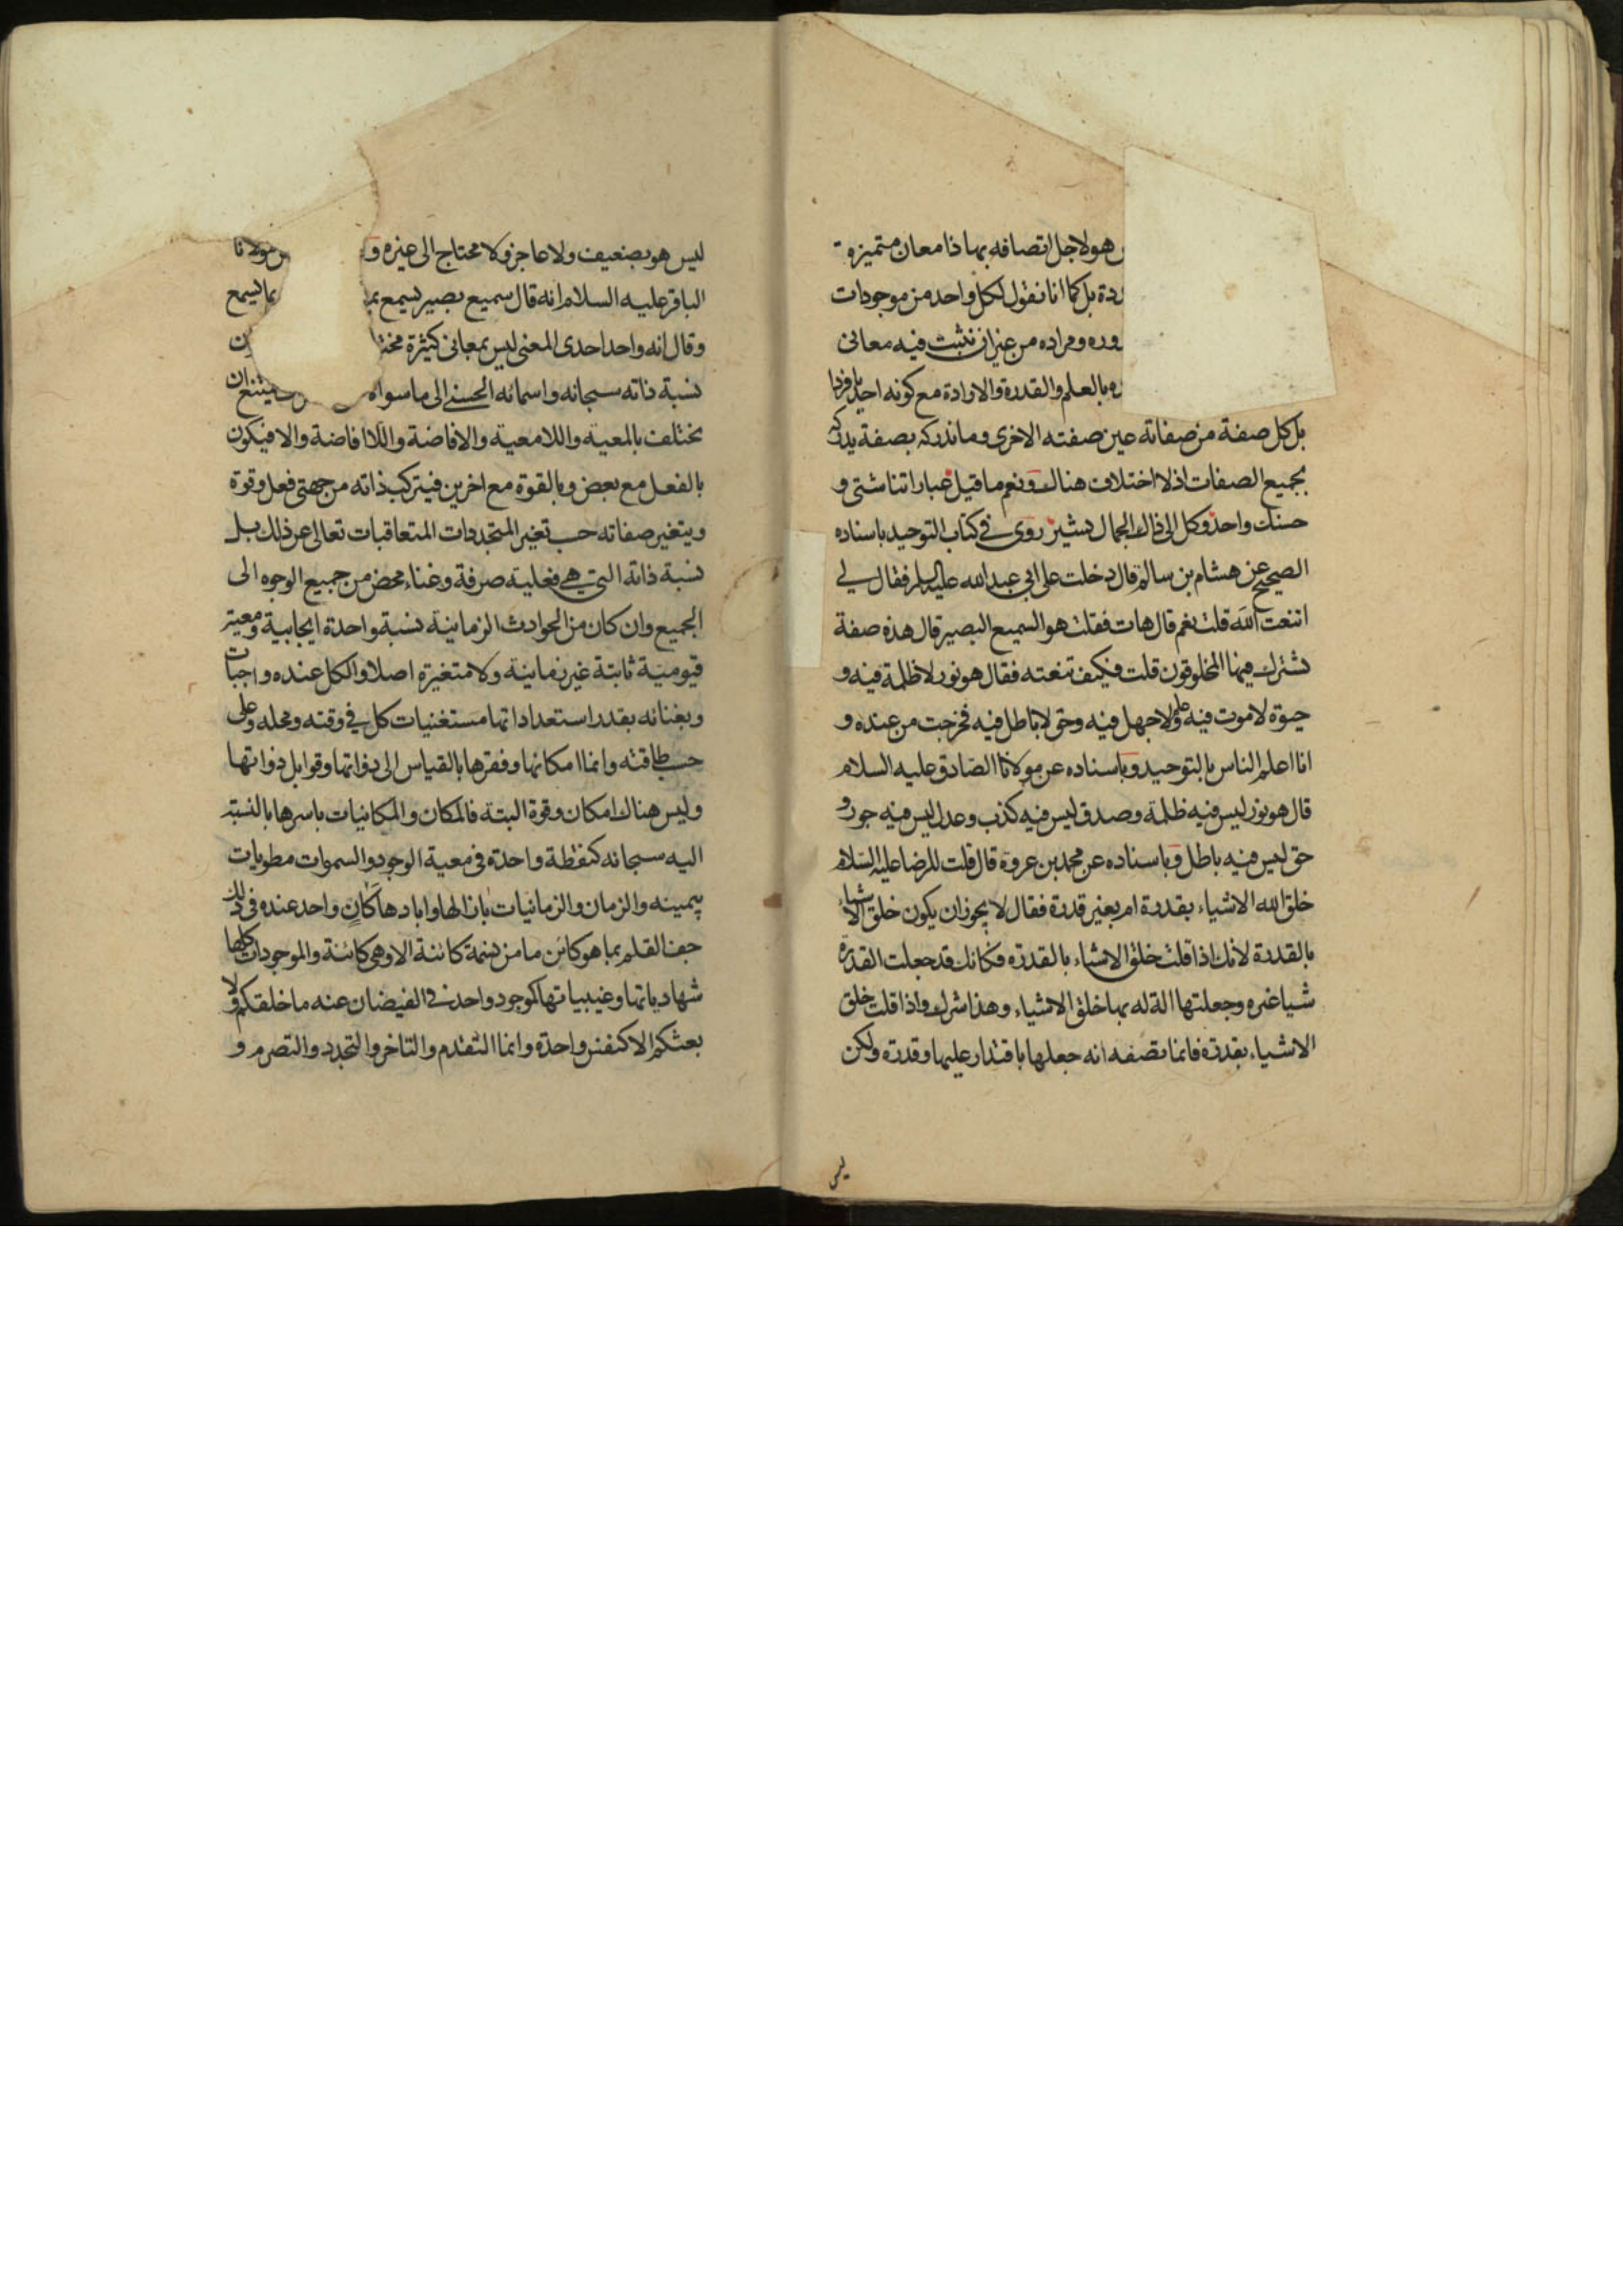 هو لاجل اتصافه بها ذا معان متميزة
بل كما انا نقول لكل واحد من موجودات
ومراده من غير ان نثبت فيه معانى
بالعلم والقدرة والارادة مع كونه احديا فردا
بل كل صفة من صفاته عين صفته الاخرى وما ندركه بصفة يدركه
بجميع الصفات اذ لا اختلاف هناك ونعم ما قيل عباراتنا شتى و
حسنك واحد وكل الى ذاك الجمال يشير روى فى كتاب التوحيد باسناده
الصحيح عن هشام بن سالم قال دخلت على ابى عبد الله عليه السلم فقال لى
اتنعت الله قلت نعم قال هات فقلت هو السميع البصير قال هذه صفة
تشترك فيها المخلوقون قلت فكيف تنعته فقال هو نور لا ظلمة فيه و
حيوة لا موت فيه وعلم لا جهل فيه وحق لا باطل فيه فخرجت من عنده و
انا اعلم الناس بالتوحيد وباسناده عن مولانا الصادق عليه السلام
قال هو نور ليس فيه ظلمة وصدق ليس فيه كذب وعدل ليس فيه جور و
حق ليس فيه باطل وباسناده عن محمد بن عروة قال قلت للرضا عليه السلام
خلق الله الاشياء بقدرة ام بغير قدرة فقال لا يجوز ان يكون خلق الاشياء
بالقدرة لانك اذا قلت خلق الاشياء بالقدرة فكانك قد جعلت القدرة
شيا غيره وجعلتها الة له بها خلق الاشياء وهذا شرك واذا قلت خلق
الاشياء بقدرة فانما تصفه انه جعلها باقتدار عليها وقدرة ولكن
ليس
ليس هو بضعيف ولا عاجز ولا محتاج الى غيره و مولانا
الباقر عليه السلام انه قال سميع بصير يسمع بما يسمع
وقال انه واحد احدى المعنى ليس بمعانى كثيرة
نسبة ذاته سبحانه واسمائه الحسنى الى ما سواه يمتنع ان
تختلف بالمعية واللامعية والافاضة واللاافاضة والا فيكون
بالفعل مع بعض وبالقوة مع اخرين فيتركب ذاته من جهتى فعل وقوة
ويتغير صفاته حسب تغير المتجددات المتعاقبات تعالى عن ذلك بل
نسبة ذاته التى هى فعلية صرفة وغناء محض من جميع الوجوه الى
الجميع وان كان من الحوادث الزمانية نسبة واحدة ايجابية ومعية
قيومية ثابتة غير زمانية ولا متغيرة اصلا والكل عنده واجبات
وبغنائه بقدر استعداداتها مستغنيات كل فى وقته ومحله وعلى
حسب طاقته وانما امكانها وفقرها بالقياس الى ذواتها وقوابل ذواتها
وليس هناك امكان وقوة البتة فالمكان والمكانيات باسرها بالنسبة
اليه سبحانه كنقطة واحدة فى معية الوجود والسموات مطويات
بيمينه والزمان والزمانيات بازالها واباد ها كان واحد عنده فى ذلك
جف القلم بما هو كائن ما من نسمة كائنة الا وهى كائنة والموجودات كلها
شهادياتها وغيبياتها كموجود واحد فى الفيضان عنه ما خلقكم ولا
بعثكم الا كنفس واحدة وانما التقدم والتاخر والتجدد والتصرم و